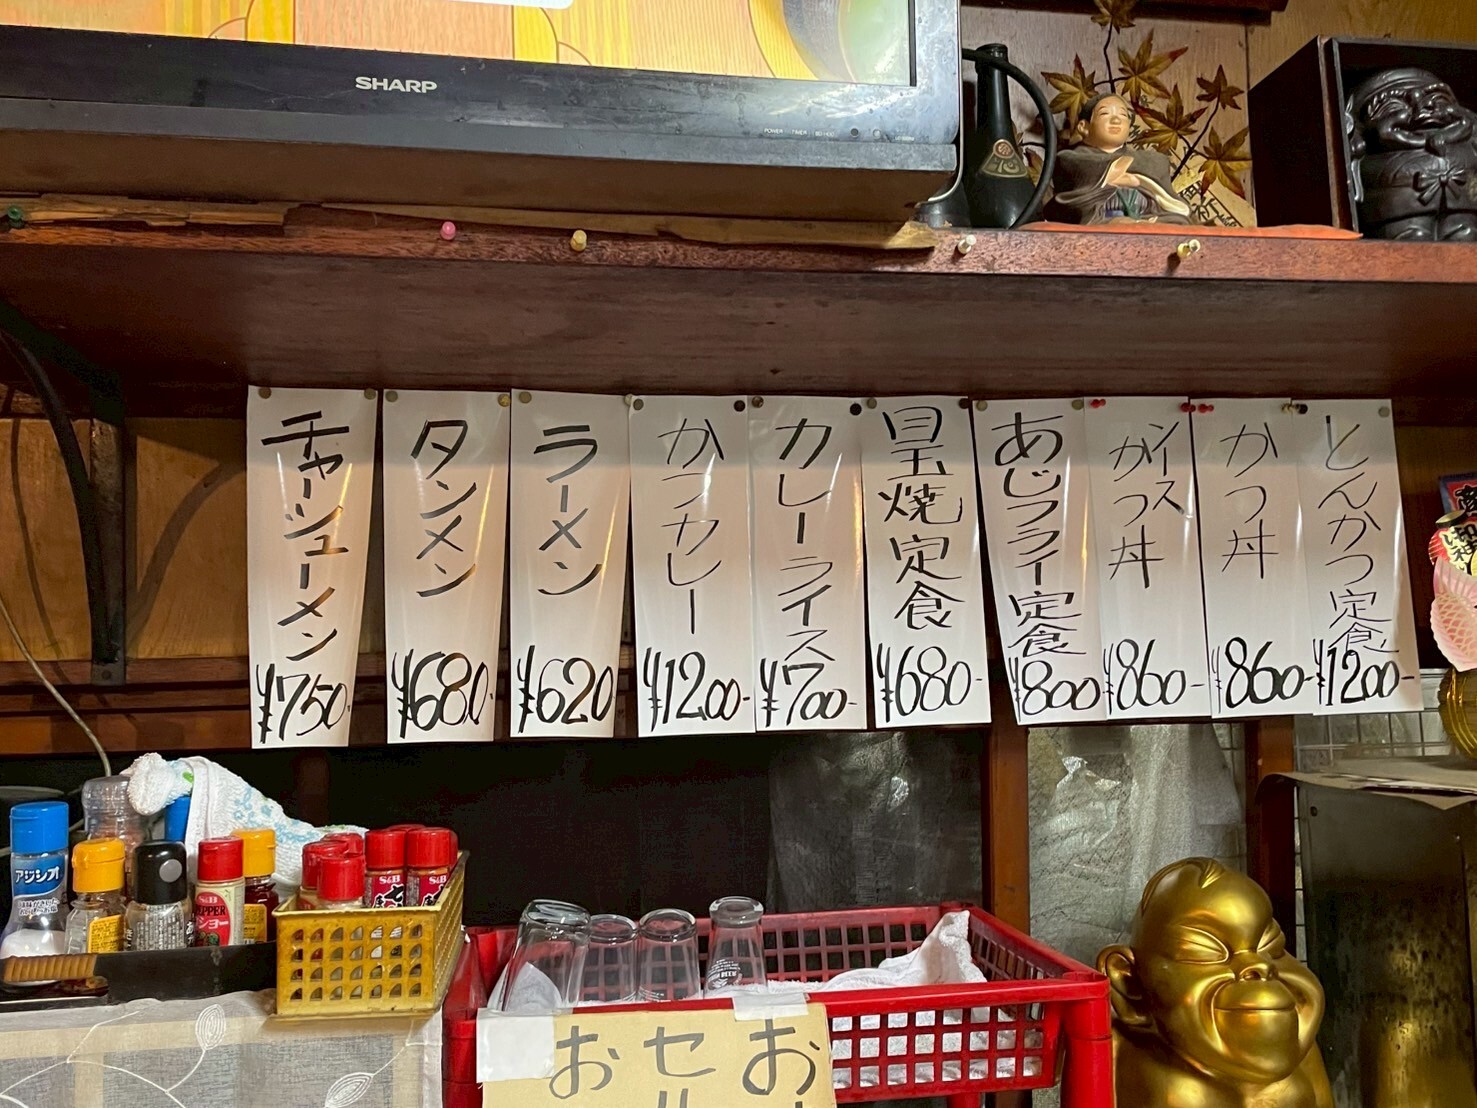 SHARP
POWER
TIMER
とんかつ定食
¥1200-
かつ丼
¥860-
ソース
かつ丼
¥860-
あじフライ定食
¥800
目玉焼定食
¥680-
カレーライス
¥700-
かつカレー
¥1200-
ラーメン
¥620
タンメン
¥680.
チャーシューメン
¥750.
アジシオ
S&B
PEPPER
S&B
S&B
お
セル
お